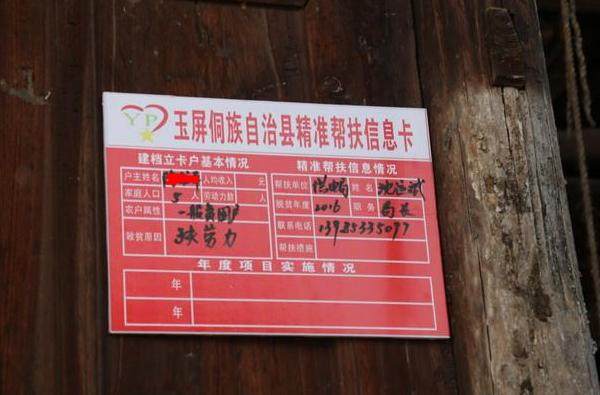 YP
玉屏侗族自治县精准帮扶信息卡
建档立卡户基本情况
精准帮扶信息情况
户主姓名 人均收入 元
家庭人口 5 人 劳动力数 人
农户属性 一般贫困户
致贫原因 缺劳力
帮扶单位 姓名
脱贫年度 2016 职务 局长
联系电话 13985335097
帮扶措施
年度项目实施情况
年
年